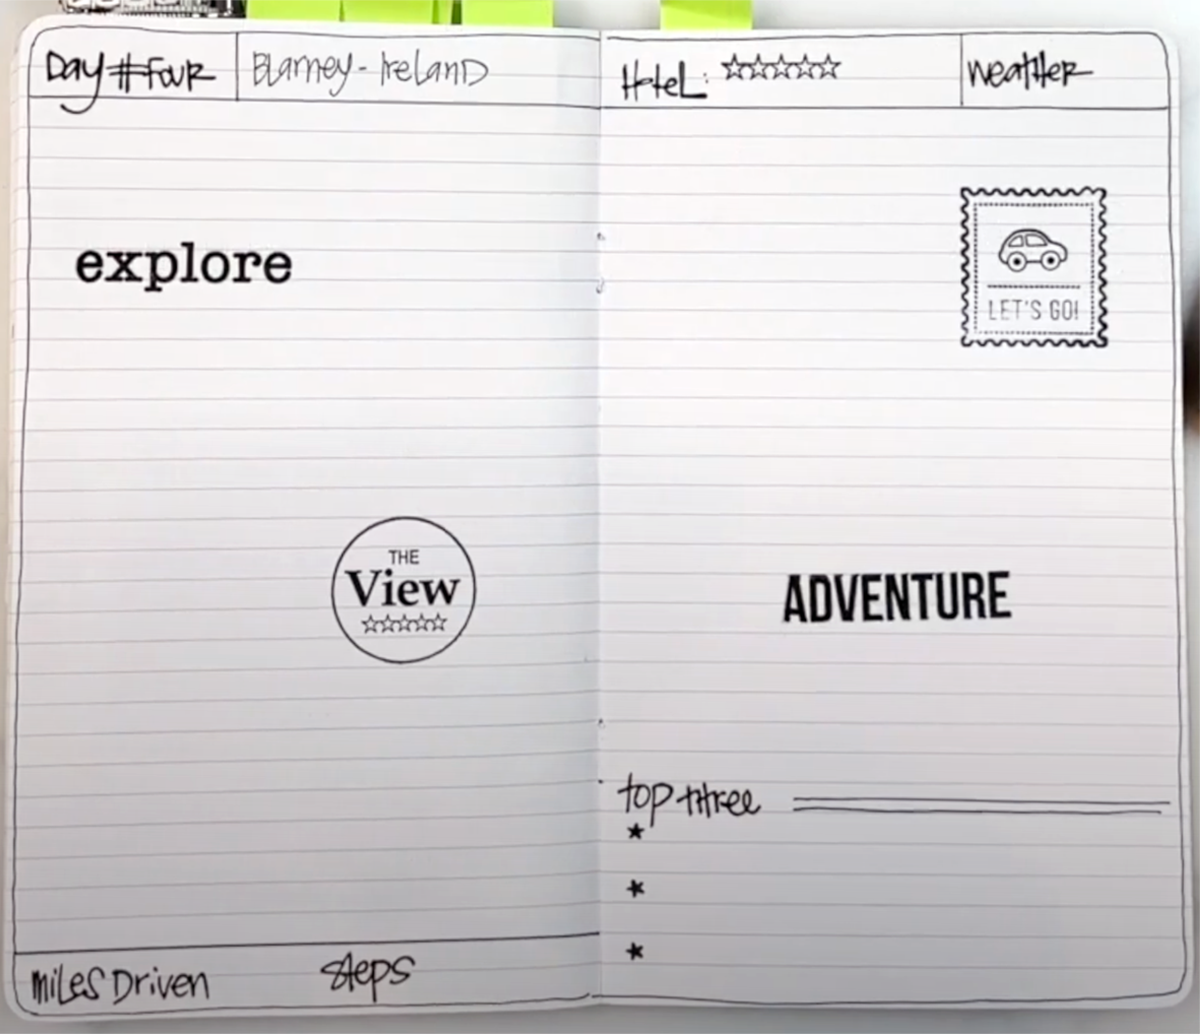 Day #Four
Blarney - Ireland
explore
THE
View
☆☆☆☆☆
miles Driven
steps
Hotel: ☆☆☆☆☆
weather
LET'S GO!
ADVENTURE
top three
★
★
★